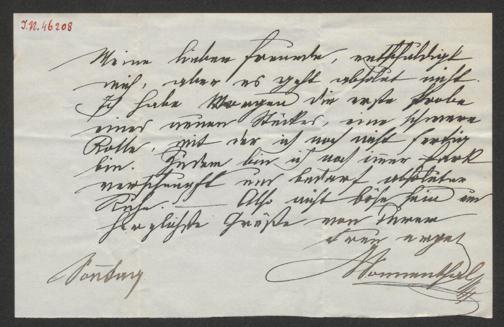 J.N. 46208
Meine lieben Freunde, entschuldigt
mich, aber es geht absolut nicht.
Ich habe Morgen die erste Probe
eines neuen Stückes, eine schwere
Rolle, mit der ich noch nicht fertig
bin. Zudem bin ich noch immer stark
verschnupft und bedarf absoluter
Ruhe. — Also nicht böse sein und
herzlichste Grüße von Ihrem
treu ergeb
Sonnenthal
Sonntag